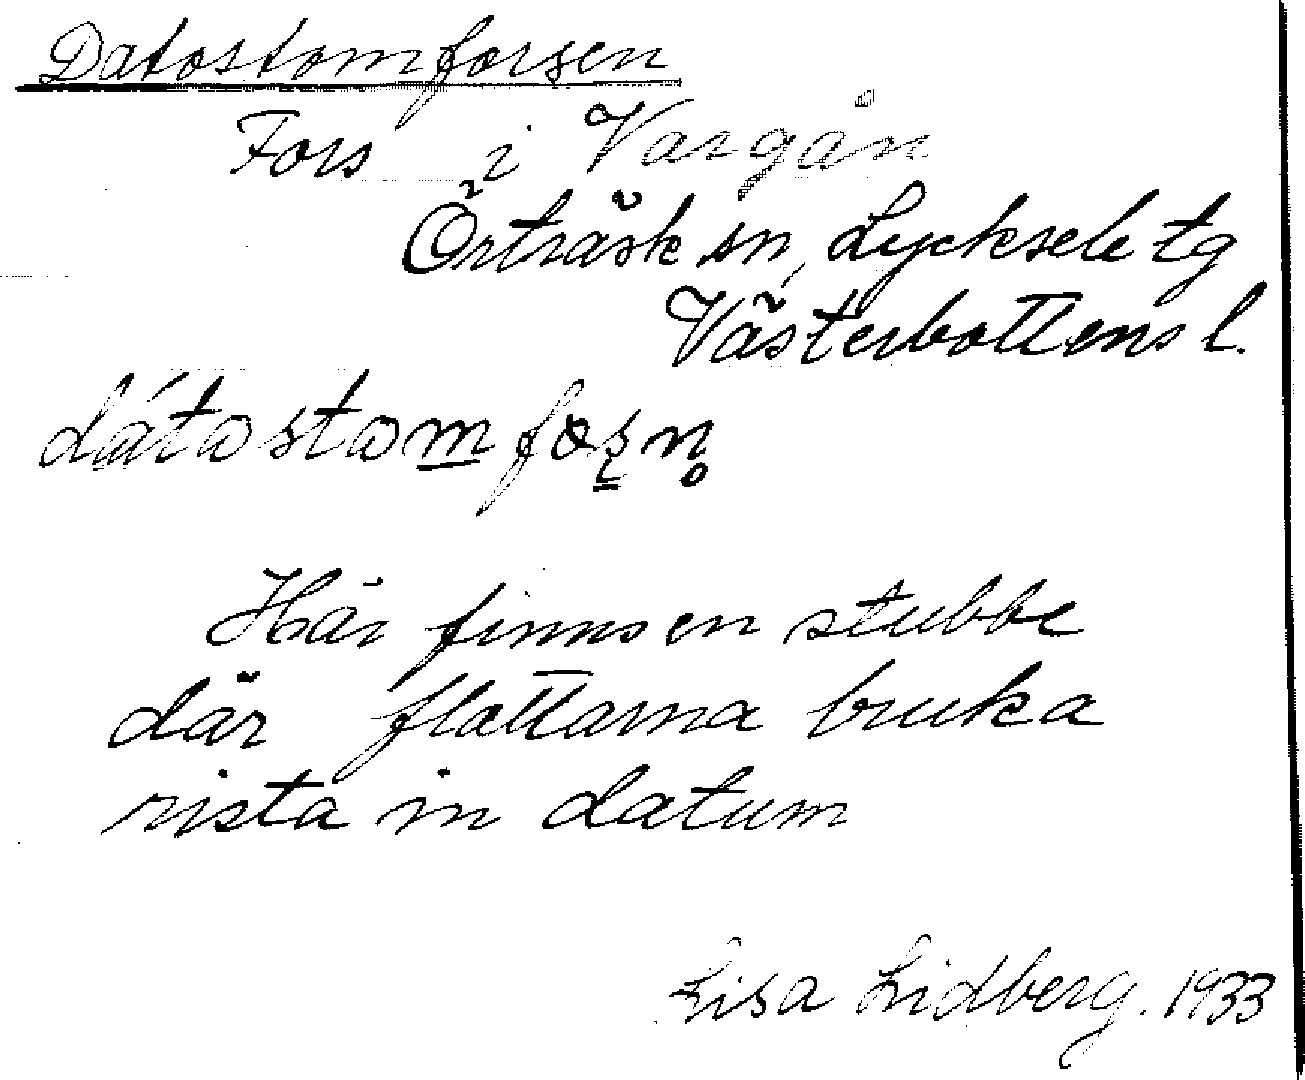 Datostomforsen
Fors i Vargån
Örträsk sn, Lycksele tg
Västerbottens l.
dátostom̲ fors̲n̥
Här finns en stubbe
där flottarna bruka
rista in datum
Lisa Lidberg. 1933